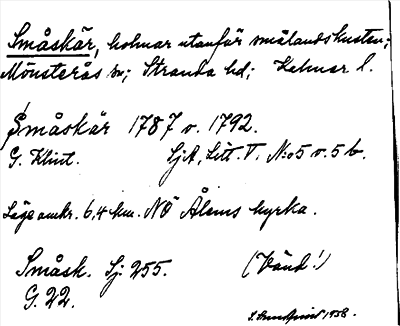 Småskär, holmar utanför smålandskusten;
Mönsterås sn; Stranda hd; Kalmar l.
Småskär 1787 o. 1792.
G. Klint. SjA, Litt. V. N:o 5 o. 5 b.
Läge omkr. 6,4 km. NÖ Ålems kyrka.
Småsk. Sj. 255. (Vänd!)
G. 22.
1938.